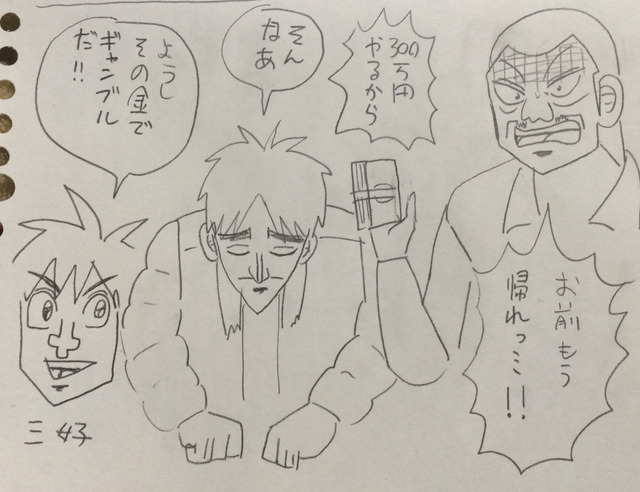 300万円
やるから
お前もう
帰れっミ!!
そん
なあ
ようし
その金で
ギャンブル
だ!!
三好